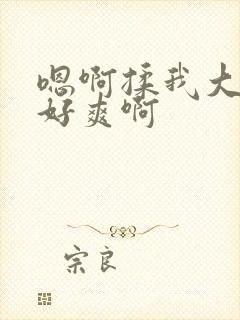 嗯啊揉我大
好爽啊
宗良